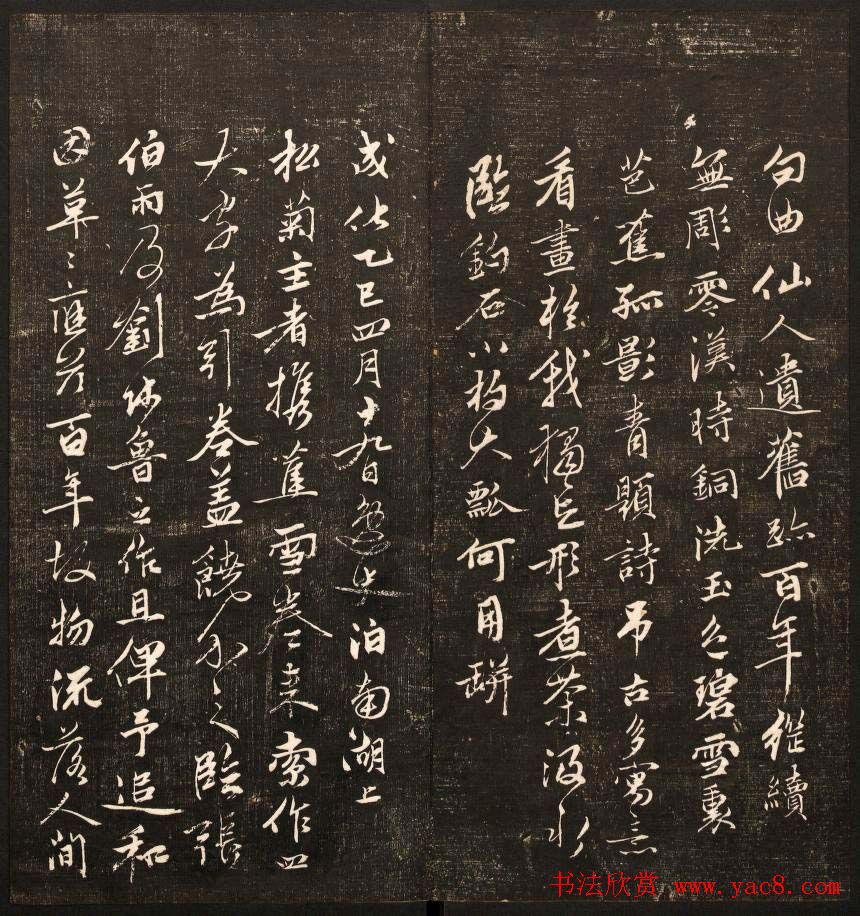 句曲仙人遺舊跡百年續
無彫零漢時銅洗玉色碧雪裏
芭蕉孤影青題詩吊古多寓意
看畫於我獨忘形煮茶汲水
臨鈎石小杓大瓢何用缾
成化乙巳四月十九日泊南湖上
松菊主者攜蕉雪卷來索作四
大字為引卷蓋饒介之臨張
伯雨及劉師魯之作且俾予追和
因草〻應百年故物流落人間
书法欣赏 www.yac8.com